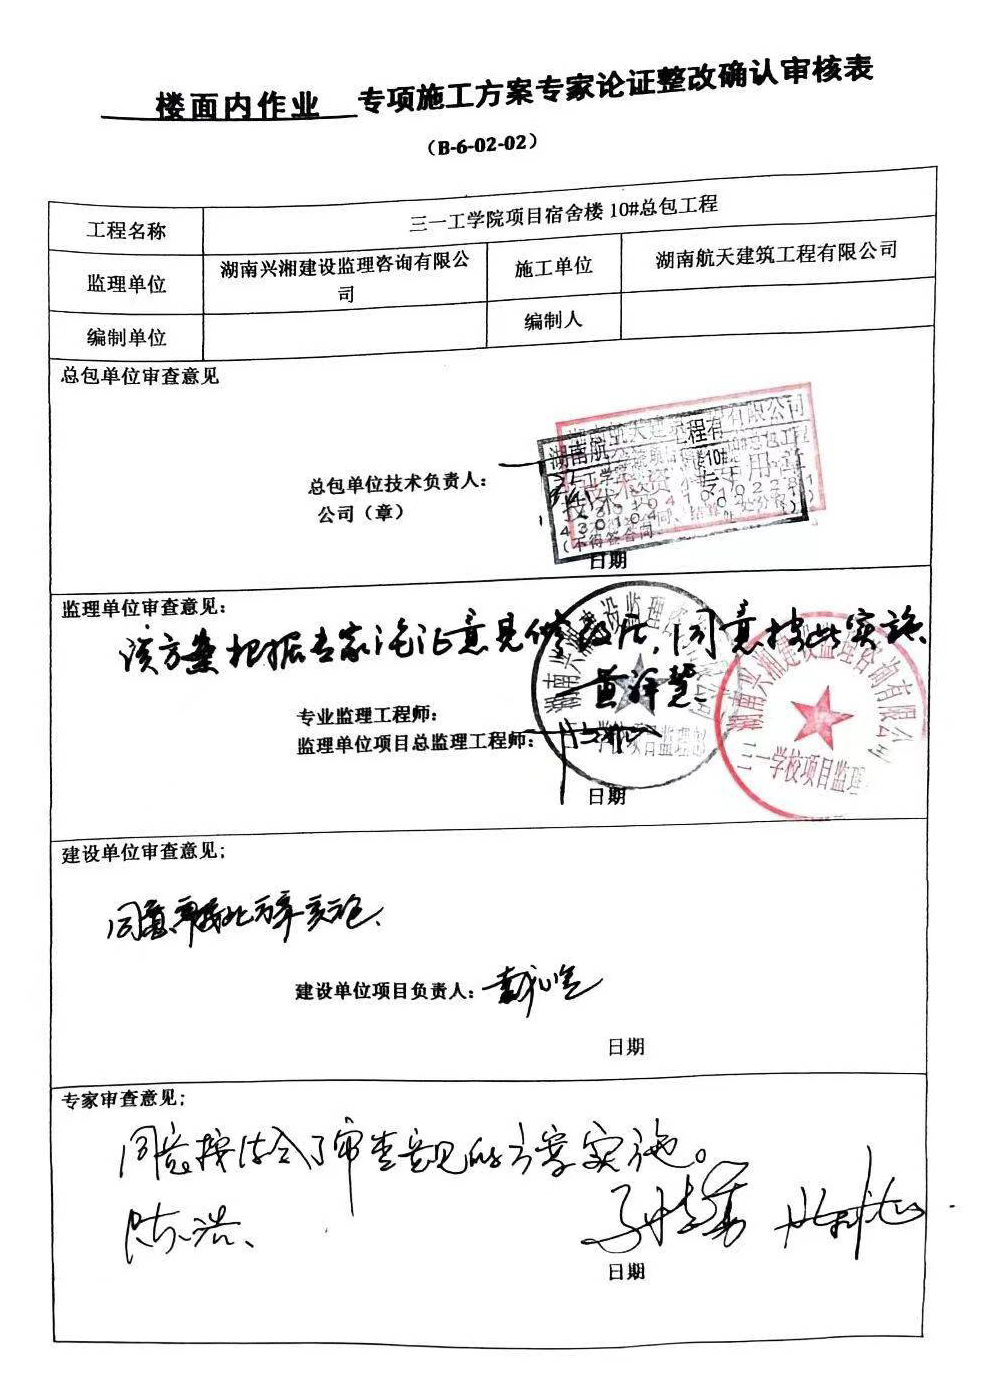 楼面内作业 专项施工方案专家论证整改确认审核表
（B-6-02-02）
工程名称 三一工学院项目宿舍楼 10#总包工程
监理单位 湖南兴湘建设监理咨询有限公司 施工单位 湖南航天建筑工程有限公司
编制单位 编制人
总包单位审查意见
总包单位技术负责人：
公司（章）
日期
监理单位审查意见：
该方案根据专家论证意见修改后，同意按此实施。
专业监理工程师：
监理单位项目总监理工程师：
日期
湖南兴湘建设监理咨询有限公司
三一学校项目监理
建设单位审查意见；
同意按此方案实施。
建设单位项目负责人：
日期
专家审查意见；
同意按结合了审查意见的方案实施。
陈浩
日期